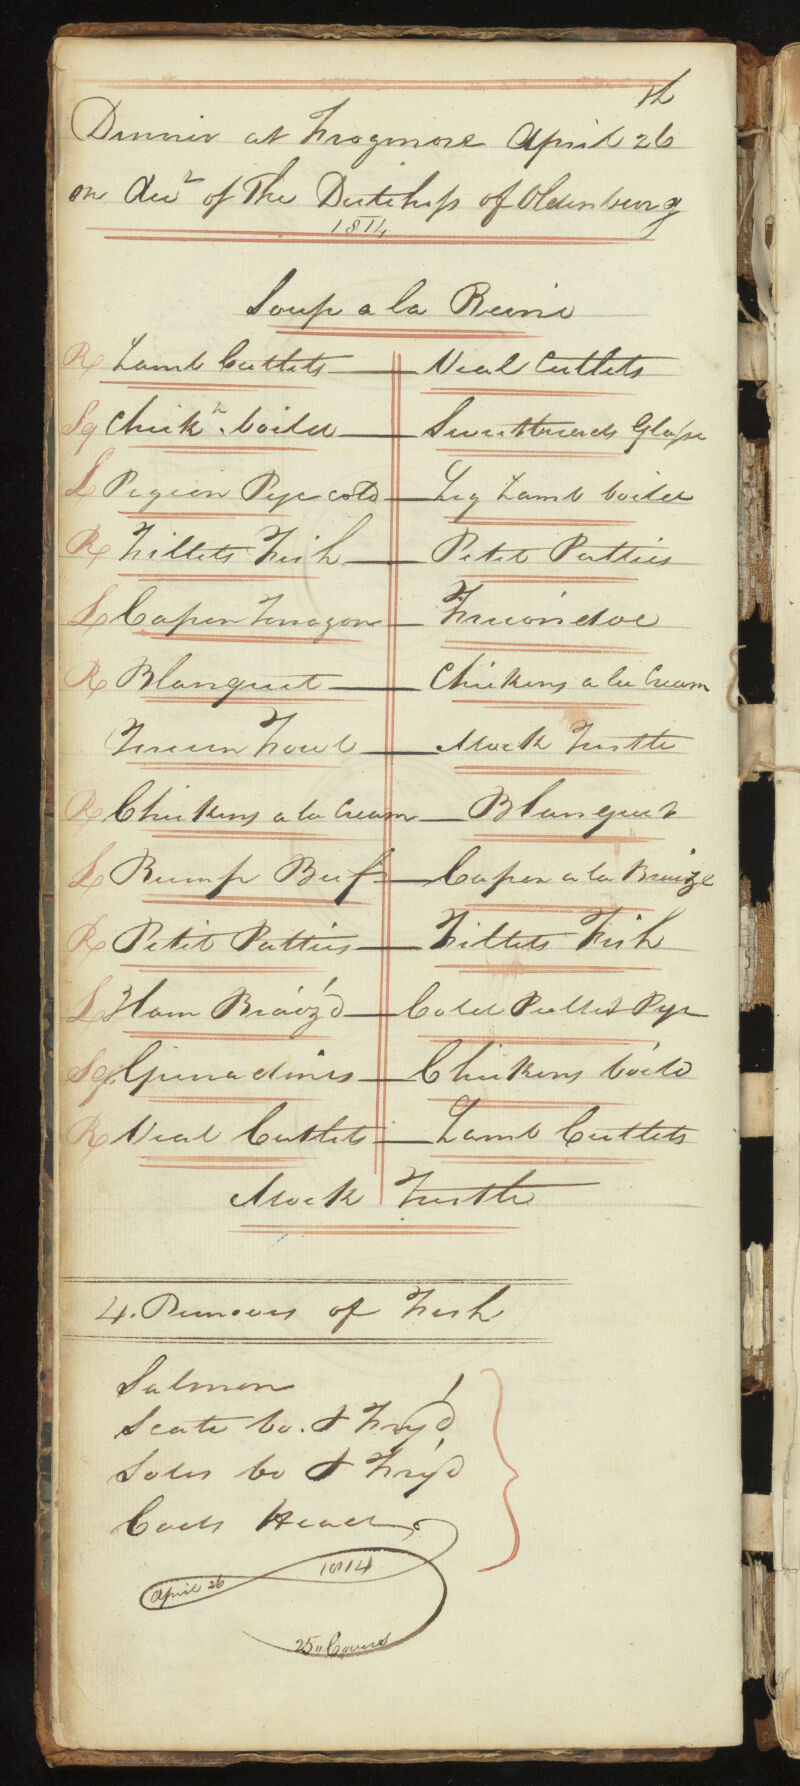 Dinner at Frogmore April 26th
on Acc.t of The Dutchess of Oldenburg
1814
Soup a la Reine
R Lamb Cutlets — Veal Cutlets
Sq Chick.n boiled — Sweetbreads Glasse
L Pigeon Pye cold — Leg Lamb boiled
R Fillets Fish — Petit Patties
L Capon Terragon — Fricondoe
R Blanquet — Chickens a la Cream
Fowl — Mock Turtle
R Chickens a la Cream — Blanquet
L Rump Beef — Capon a la Braize
R Petit Patties — Fillets Fish
L Ham Braiz'd — Cold Pullet Pye
Sq Grenadines — Chickens boil'd
R Veal Cutlets — Lamb Cutlets
Mock Turtle
4. Removes of Fish
Salmon
Scate bo. & Fry'd
Soles bo & Fry'd
Cods Head
April 26 1814
25 " Covers